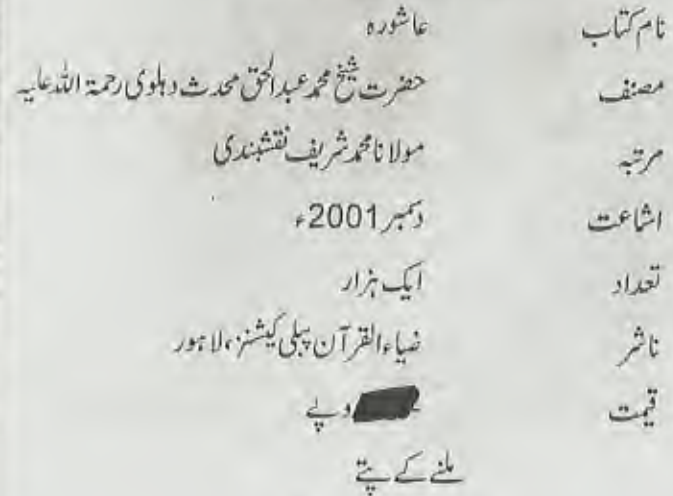 نام کتاب عاشورہ
مصنف حضرت شیخ محمد عبدالحق محدث دہلوی رحمۃ اللہ علیہ
مرتبہ مولانا محمد شریف نقشبندی
اشاعت دسمبر 2001ء
تعداد ایک ہزار
ناشر ضیاءالقرآن پبلی کیشنز، لاہور
قیمت روپے
ملنے کے پتے